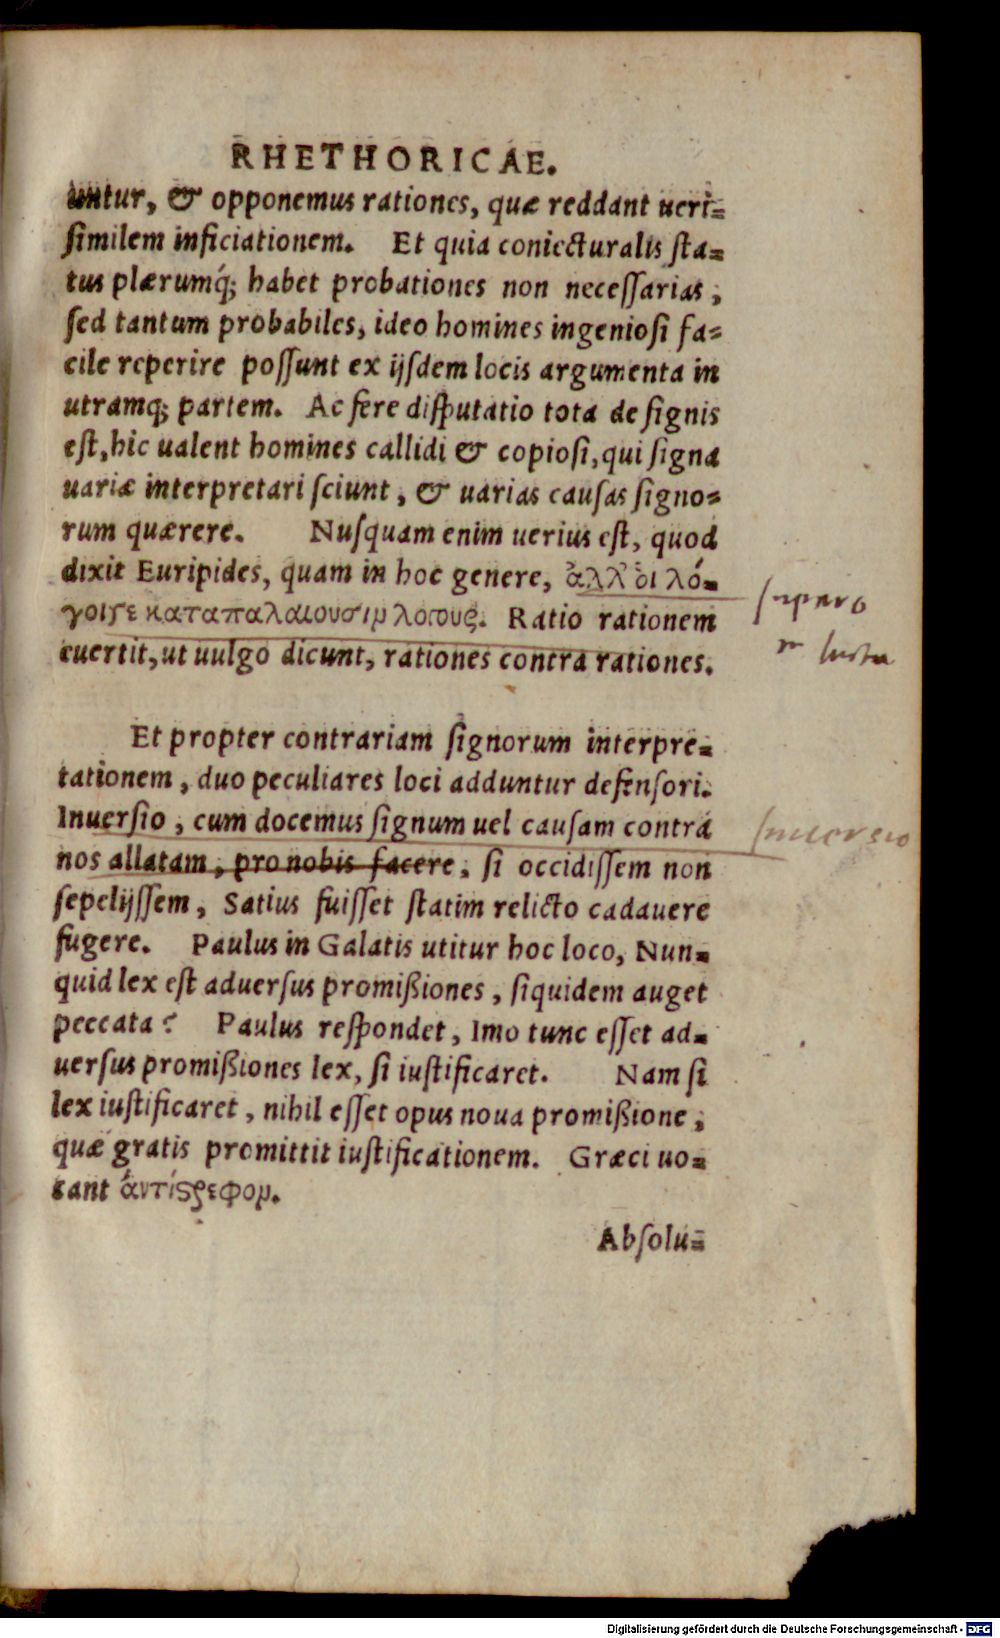 RHETHORICAE.
untur, & opponemus rationes, quæ reddant ueri=
ſimilem inficiationem. Et quia coniecturalis ſta=
tus plærumq́; habet probationes non neceſſarias,
ſed tantum probabiles, ideo homines ingenioſi fa=
cile reperire poſſunt ex ijſdem locis argumenta in
utramq; partem. Ac fere diſputatio tota de ſignis
eſt, hic ualent homines callidi & copioſi, qui ſigna
uariæ interpretari ſciunt, & uarias cauſas ſigno=
rum quærere. Nuſquam enim uerius eſt, quod
dixit Euripides, quam in hoc genere, ἀλλ' ὁι λό=
γοιγε καταπαλαιουσιν λογους. Ratio rationem
euertit, ut uulgo dicunt, rationes contra rationes.
ſupero
Et propter contrariam ſignorum interpre=
tationem, duo peculiares loci adduntur defenſori.
Inuerſio, cum docemus ſignum uel cauſam contrá
Inuersio
nos allatam, pro nobis facere, ſi occidiſſem non
ſepelijſſem, Satius fuiſſet ſtatim relicto cadauere
fugere. Paulus in Galatis utitur hoc loco, Nun=
quid lex eſt aduerſus promißiones, ſiquidem auget
peccata? Paulus reſpondet, Imo tunc eſſet ad=
uerſus promißiones lex, ſi iuſtificaret. Nam ſi
lex iuſtificaret, nihil eſſet opus noua promißione,
quæ gratis promittit iuſtificationem. Græci uo=
cant ἀντίςρεφον.
Absolu=
Digitalisierung gefördert durch die Deutsche Forschungsgemeinschaft - DFG